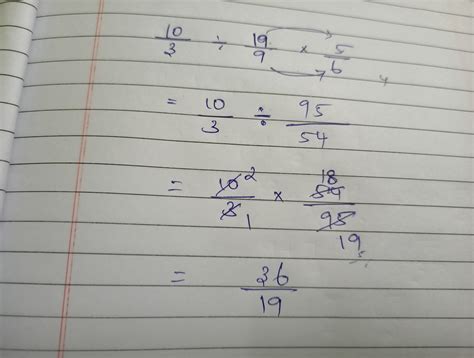 10/3 ÷ 19/9 × 5/6
= 10/3 ÷ 95/54
= 10 2/3 1 × 18 54/95 19
= 36/19